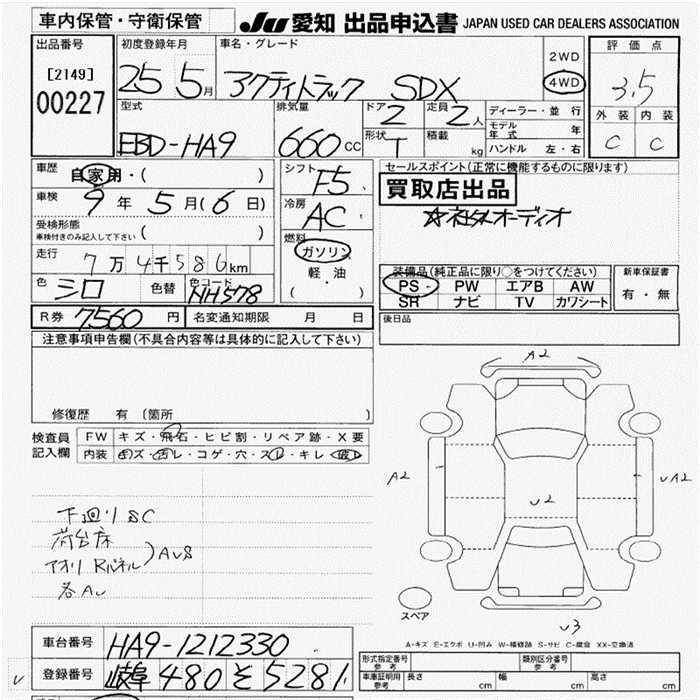 車内保管・守衛保管
JU 愛知 出品申込書 JAPAN USED CAR DEALERS ASSOCIATION
出品番号
[2149]
00227
初度登録年月
25 5月
車名・グレード
アクティトラック SDX
2WD
4WD
評価点
3.5
外装 内装
C C
型式
EBD-HA9
排気量
660 cc
ドア 2
形状 T
定員 2人
積載 kg
ディーラー・並行
モデル年式 年
ハンドル 左・右
車歴
自家用・( )
車検
9年 5月(6日)
受検形態
車検付きのみ記入して下さい ( )
走行
7万4千586km
色 シロ 色替 色コード NH578
シフト F5
冷房 AC
燃料
ガソリン
軽・油
( )
セールスポイント(正常に機能するものに限ります)
買取店出品
☆社外オーディオ
装備品(純正品に限り○をつけてください)
PS PW エアB AW
SR ナビ TV カワシート
新車保証書
有・無
R券 7560円 名変通知期限 月 日
後日品
注意事項申告欄(不具合内容等は具体的に記入して下さい)
修復歴 有 〔箇所 〕
検査員記入欄
FW キズ・飛石・ヒビ割・リペア跡・X要
内装 キズ・汚レ・コゲ・穴・スレ・キレ・破レ
下廻りSC
荷台床
アオリ Rパネル)AUS
各AU
A2
A2
U2
UA2
U3
スペア
A-キズ E-エクボ U-凹み W-補修跡 S-サビ C-腐食 XX-交換済
車台番号 HA9-1212330
登録番号 岐阜 480 そ 5281
形式指定番号 参考 類別区分番号 参考
車庫証明用 参考 長さ cm 幅 cm 高さ cm